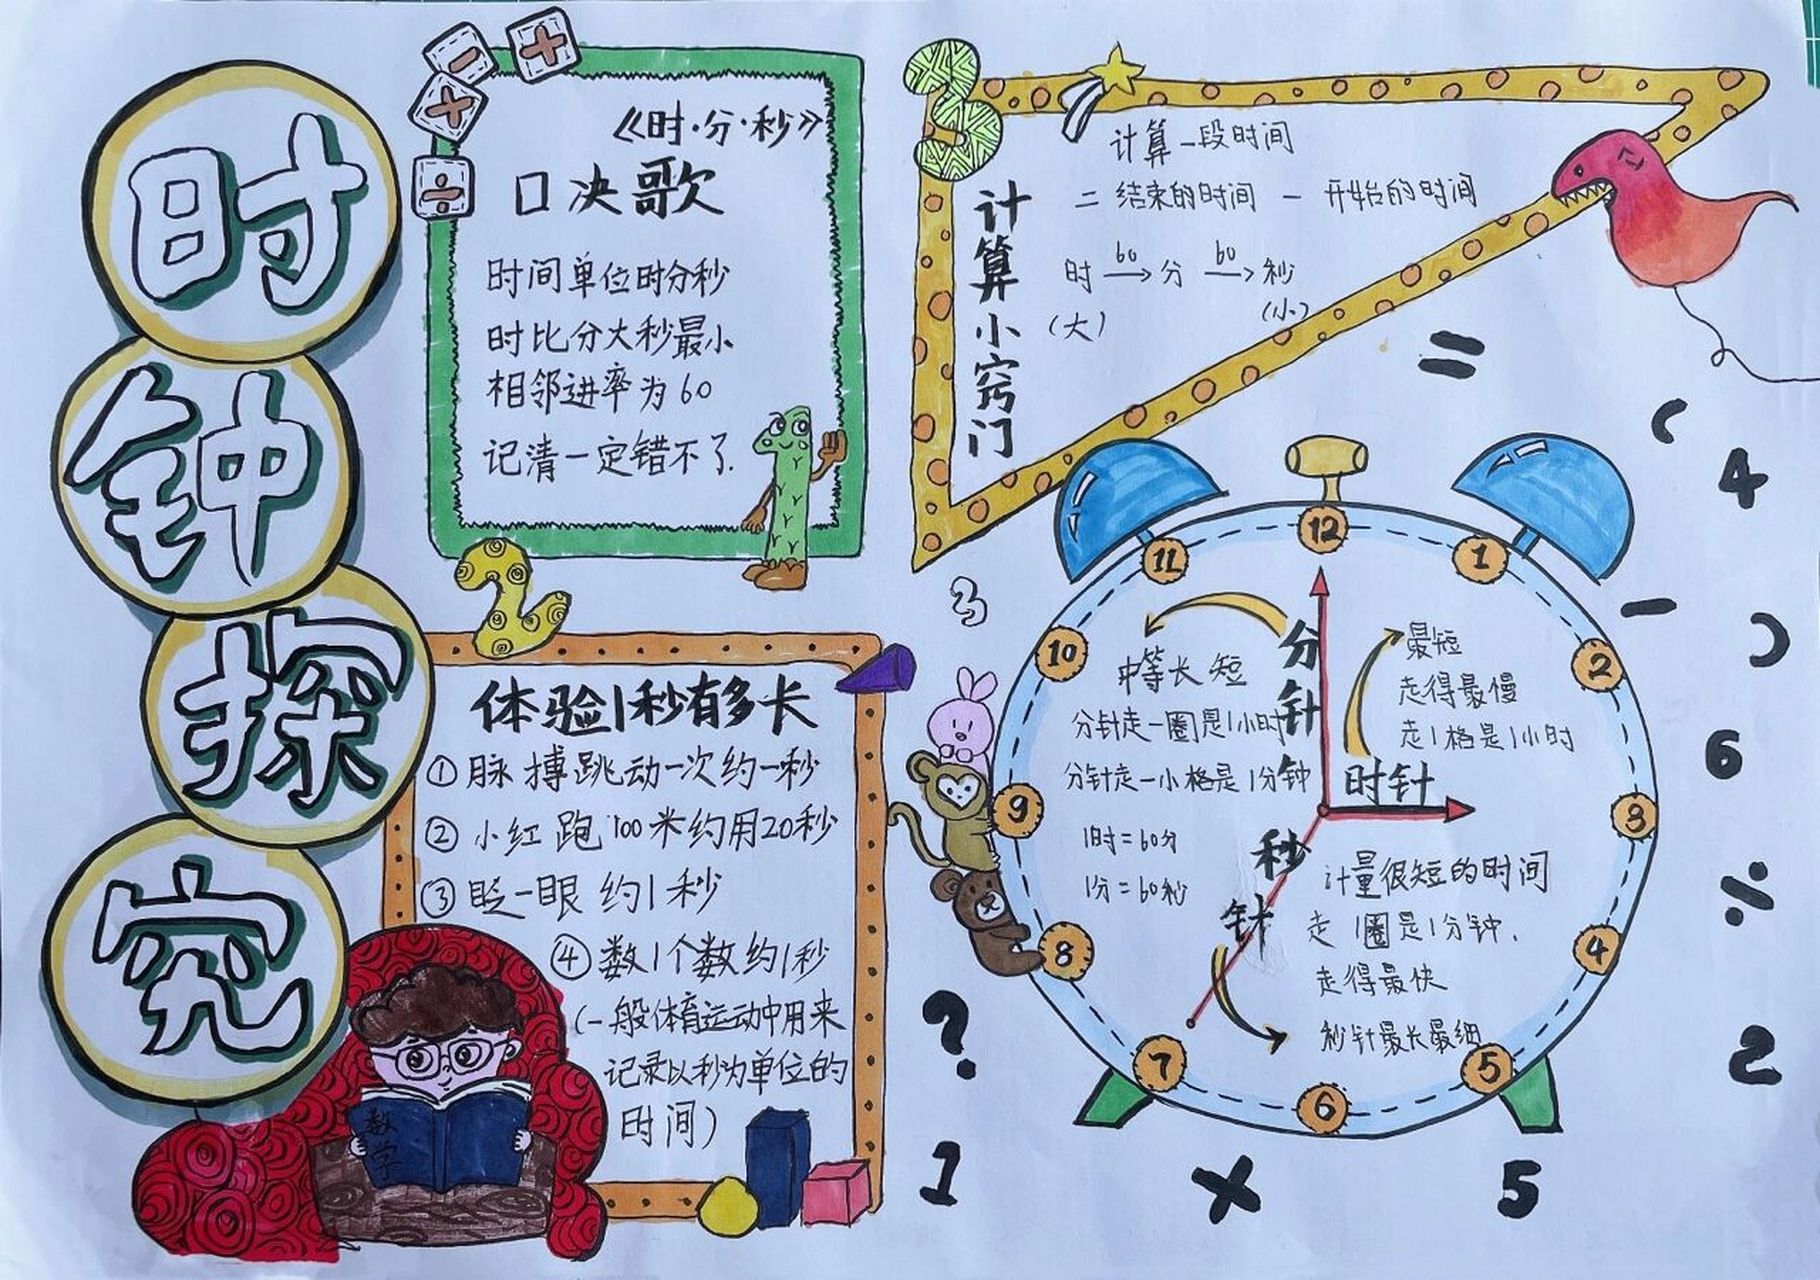 时
钟
探
究
《时·分·秒》
口决歌
时间单位时分秒
时比分大秒最小
相邻进率为60
记清一定错不了.
2
体验1秒有多长
①脉搏跳动一次约一秒
②小红跑100米约用20秒
③眨一眼约1秒
④数1个数约1秒
(一般体育运动中用来
记录以秒为单位的
时间)
数学
3
计算小窍门
计算一段时间
= 结束的时间 - 开始的时间
时 60→ 分 60→ 秒
(大) (小)
12
1
2
3
4
5
6
7
8
9
10
11
分针
中等长短
分针走一圈是1小时
分针走一小格是1分钟
1时=60分
1分=60秒
时针
最短
走得最慢
走1格是1小时
秒针
计量很短的时间
走1圈是1分钟.
走得最快
秒针最长最细
3
=
4
-
6
÷
2
?
1
×
5